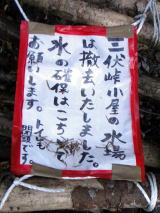 三伏峠小屋の水場
は撤去いたしました。
水の確保はこちらで
お願いします。
トイレも
閉鎖です。